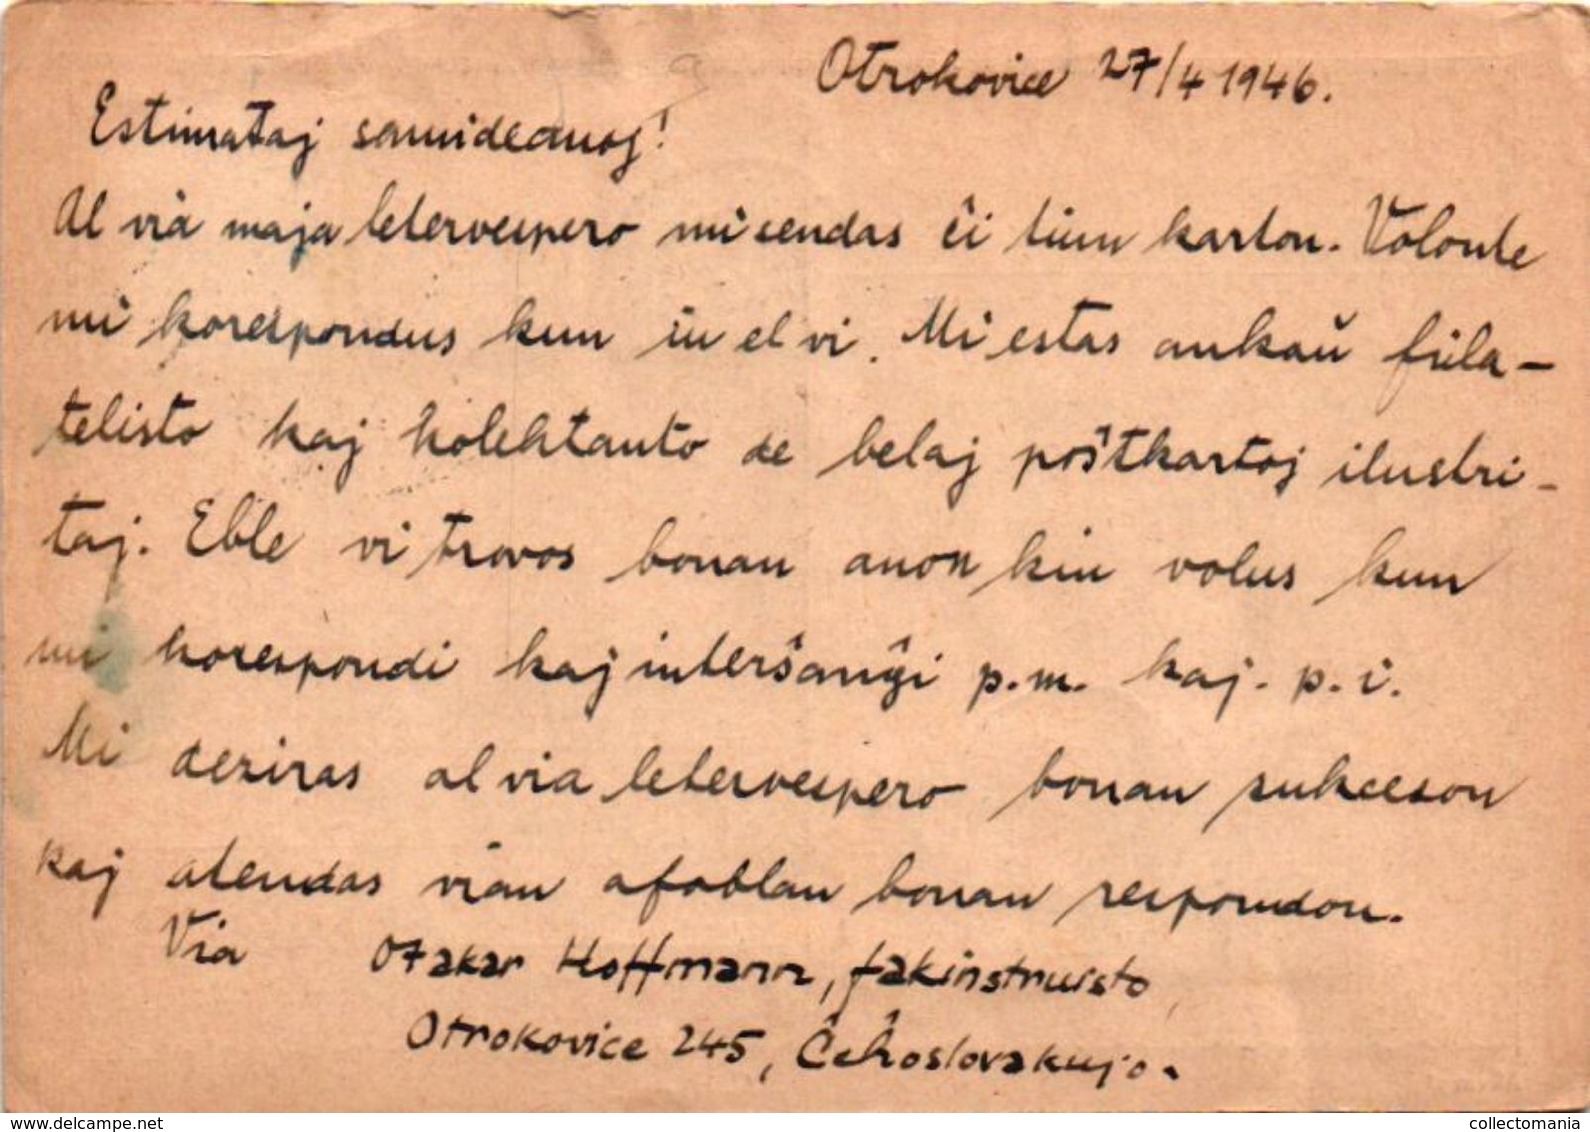 Otrokovice 27/4 1946.
Estimataj samideanoj!
Al via maja letervespero mi sendas ĉi tiun karton. Volonte
mi korespondus kun iu el vi. Mi estas ankaŭ fila-
telisto kaj kolektanto de belaj poŝtkartoj ilustri-
taj. Eble vi trovos bonan anon kiu volus kun
mi korespondi kaj interŝanĝi p.m. kaj. p.i.
Mi deziras al via letervespero bonan sukceson
kaj atendas vian afablan bonan respondon.
Via Otakar Hoffmann, fakinstruisto,
Otrokovice 245, Ĉeĥoslovakujo.
collectomania